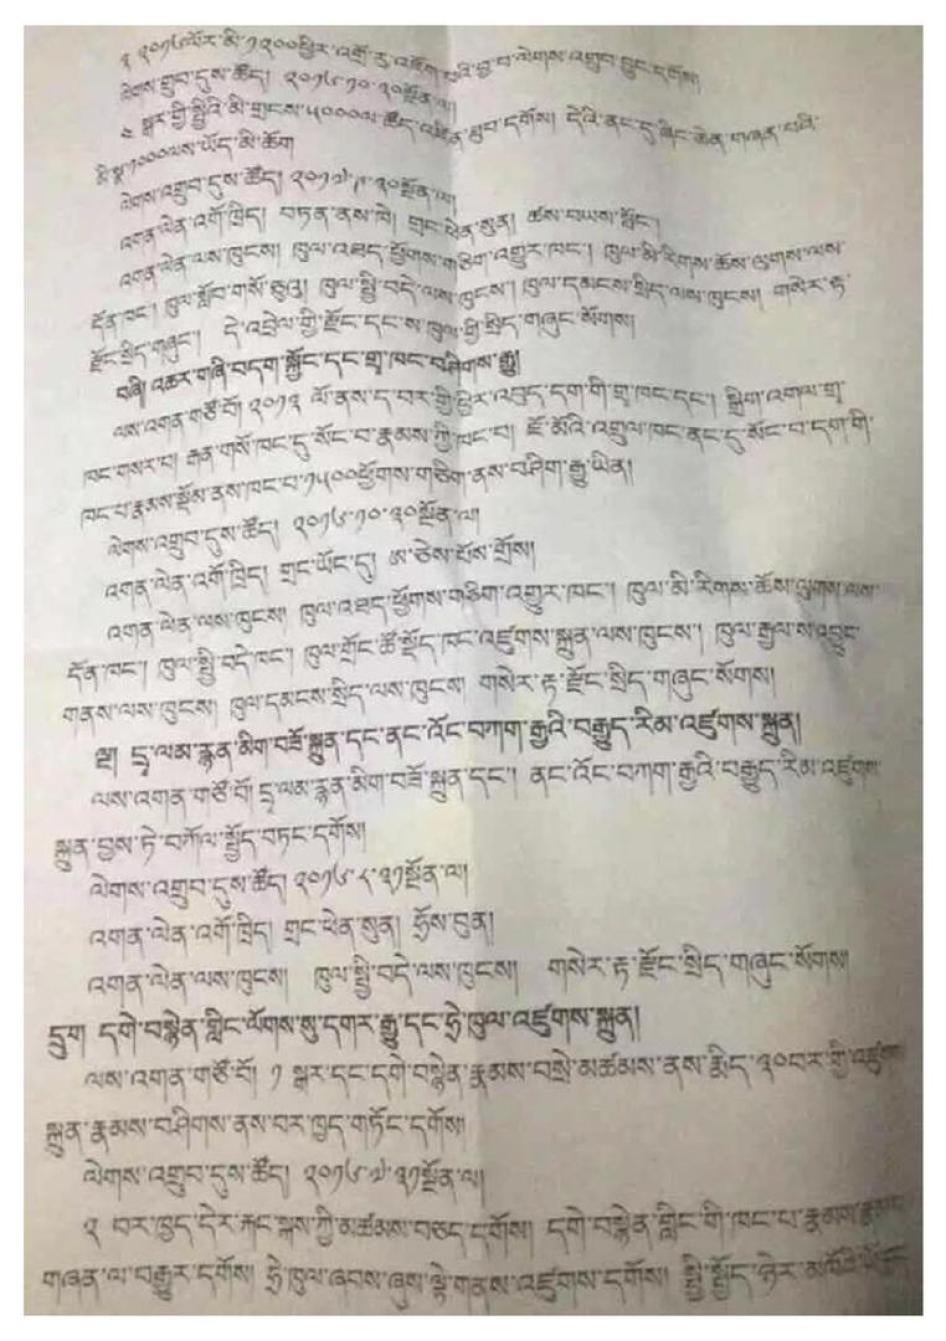 ༢ ༢༠༡༦ལོར་མི་༡༢༠༠ཕྱིར་འགྲོ་རུ་འཇོག་པའི་བྱ་བ་ལེགས་འགྲུབ་བྱུང་དགོས།
ལེགས་གྲུབ་དུས་ཚོད། ༢༠༡༦་༡༠་༣༠སྔོན་ལ།
༣ སྒར་གྱི་སྤྱིའི་མི་གྲངས་༥༠༠༠ལ་ཚོད་འཛིན་ཐུབ་དགོས། དེའི་ནང་དུ་ཞིང་ཆེན་གཞན་པའི་
མི་སྣ་༡༠༠༠ལས་ཡོད་མི་ཆོག
ལེགས་འགྲུབ་དུས་ཚོད། ༢༠༡༧་༩་༣༠སྔོན་ལ།
འགན་ལེན་འགོ་ཁྲིད། བཏན་ནས་ཁེ། གྲང་ཕེན་སུན། ཚས་བཡས་སྦོང་།
འགན་ལེན་ལས་ཁུངས། ཁུལ་འཐད་ཕྱོགས་གཅིག་འགྱུར་ཁང་། ཁུལ་མི་རིགས་ཆོས་ལུགས་ལས་
དོན་ཁང་། ཁུལ་སློབ་གསོ་ཅུའུ། ཁུལ་སྤྱི་བདེ་ལས་ཁུངས། ཁུལ་དམངས་སྲིད་ལས་ཁུངས། གསེར་རྟ་
རྫོང་སྲིད་གཞུང་། དེ་འབྲེལ་གྱི་རྫོང་དང་ས་ཁུལ་གྱི་སྲིད་གཞུང་སོགས།
བཞི། འཆར་གཞི་བདག་སྐྱོང་དང་གྲྭ་ཁང་བཤིགས་རྒྱུ།
ལས་འགན་གཙོ་བོ། ༢༠༡༢ ལོ་ནས་ད་བར་གྱི་ཕྱིར་འབུད་དག་གི་གྲྭ་ཁང་དང་། སྒྲིག་འགལ་གྲྭ་
ཁང་གསར་པ། རྒན་གསོ་ཁང་དུ་སོང་བ་རྣམས་ཀྱི་ཁང་པ། ཇོ་མོའི་འགྲུལ་ཁང་ནང་དུ་སོང་བ་དག་གི་
ཁང་པ་རྣམས་སྡོམ་ནས་ཁང་པ་༡༥༠༠ཕྱོགས་གཅིག་ནས་བཤིག་རྒྱུ་ཡིན།
ལེགས་འགྲུབ་དུས་ཚོད། ༢༠༡༦་༡༠་༣༠སྔོན་ལ།
འགན་ལེན་འགོ་ཁྲིད། གྲང་ཡོང་དུ། ཨ་ཅེས་ཕྲོས་གྲོས།
འགན་ལེན་ལས་ཁུངས། ཁུལ་འཐད་ཕྱོགས་གཅིག་འགྱུར་ཁང་། ཁུལ་མི་རིགས་ཆོས་ལུགས་ལས་
དོན་ཁང་། ཁུལ་སྤྱི་བདེ་ཁང་། ཁུལ་གྲོང་ཚོ་སྡོད་ཁང་འཛུགས་སྐྲུན་ལས་ཁུངས་། ཁུལ་རྒྱལ་ས་འབྱུང་
གནས་ལས་ཁུངས། ཁུལ་དམངས་སྲིད་ལས་ཁུངས། གསེར་རྟ་རྫོང་སྲིད་གཞུང་སོགས།
ལྔ། དྲྭ་ལམ་རྙན་མིག་བཟོ་སྐྲུན་དང་ནང་འོང་བཀག་རྒྱའི་བརྒྱུད་རིམ་འཛུགས་སྐྲུན།
ལས་འགན་གཙོ་བོ། དྲྭ་ལམ་རྙན་མིག་བཟོ་སྐྲུན་དང་། ནང་འོང་བཀག་རྒྱའི་བརྒྱུད་རིམ་འཛུགས་
སྐྲུན་བྱས་ཏེ་བཀོལ་སྤྱོད་བཏང་དགོས།
ལེགས་འགྲུབ་དུས་ཚོད། ༢༠༡༦་༨་༣༡སྔོན་ལ།
འགན་ལེན་འགོ་ཁྲིད། གྲང་ཕེན་སུན། ཧྲོས་བུན།
འགན་ལེན་ལས་ཁུངས། ཁུལ་སྤྱི་བདེ་ལས་ཁུངས། གསེར་རྟ་རྫོང་སྲིད་གཞུང་སོགས།
དྲུག དགེ་བསྙེན་གླིང་ལོགས་སུ་དགར་རྒྱུ་དང་ཧྲེ་ཁུལ་འཛུགས་སྐྲུན།
ལས་འགན་གཙོ་བོ། ༡ སྒར་དང་དགེ་བསྙེན་རྣམས་བསྲེ་མཚམས་ནས་རྨིད་༣༠བར་གྱི་འཛུགས་
སྐྲུན་རྣམས་བཤིགས་ནས་བར་ཁྱད་གཏོང་དགོས།
ལེགས་འགྲུབ་དུས་ཚོད། ༢༠༡༦་༧་༣༡སྔོན་ལ།
༢ བར་ཁྱད་དེར་རྐང་སྐས་ཀྱི་མཚམས་བཅད་དགོས། དགེ་བསྙེན་གླིང་གི་ཁང་པ་རྣམས་
གཞན་ལ་བརྒྱུར་དགོས། ཧྲེ་ཁུལ་ཞབས་ཞུས་ལྟེ་གནས་འཛུགས་དགོས། སྤྱི་སྤྱོད་ཉེར་མཁོའི་